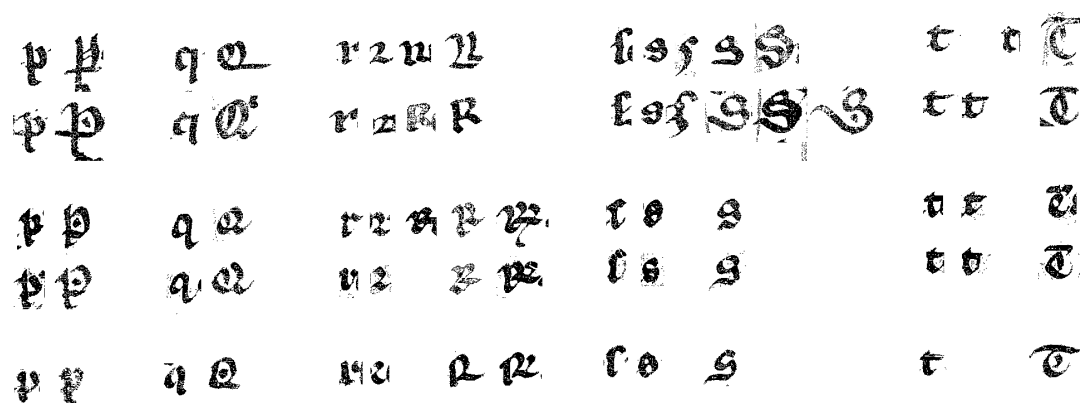 p P q Q r ꝛ R R ſ s ſ S S t t T
p P q Q r ꝛ R R ſ s ſ S S S t t T
p P q Q r ꝛ R R R ſ s S t t T
p P q Q r ꝛ R R ſ s S t t T
p p q Q r ꝛ R R ſ s S t T